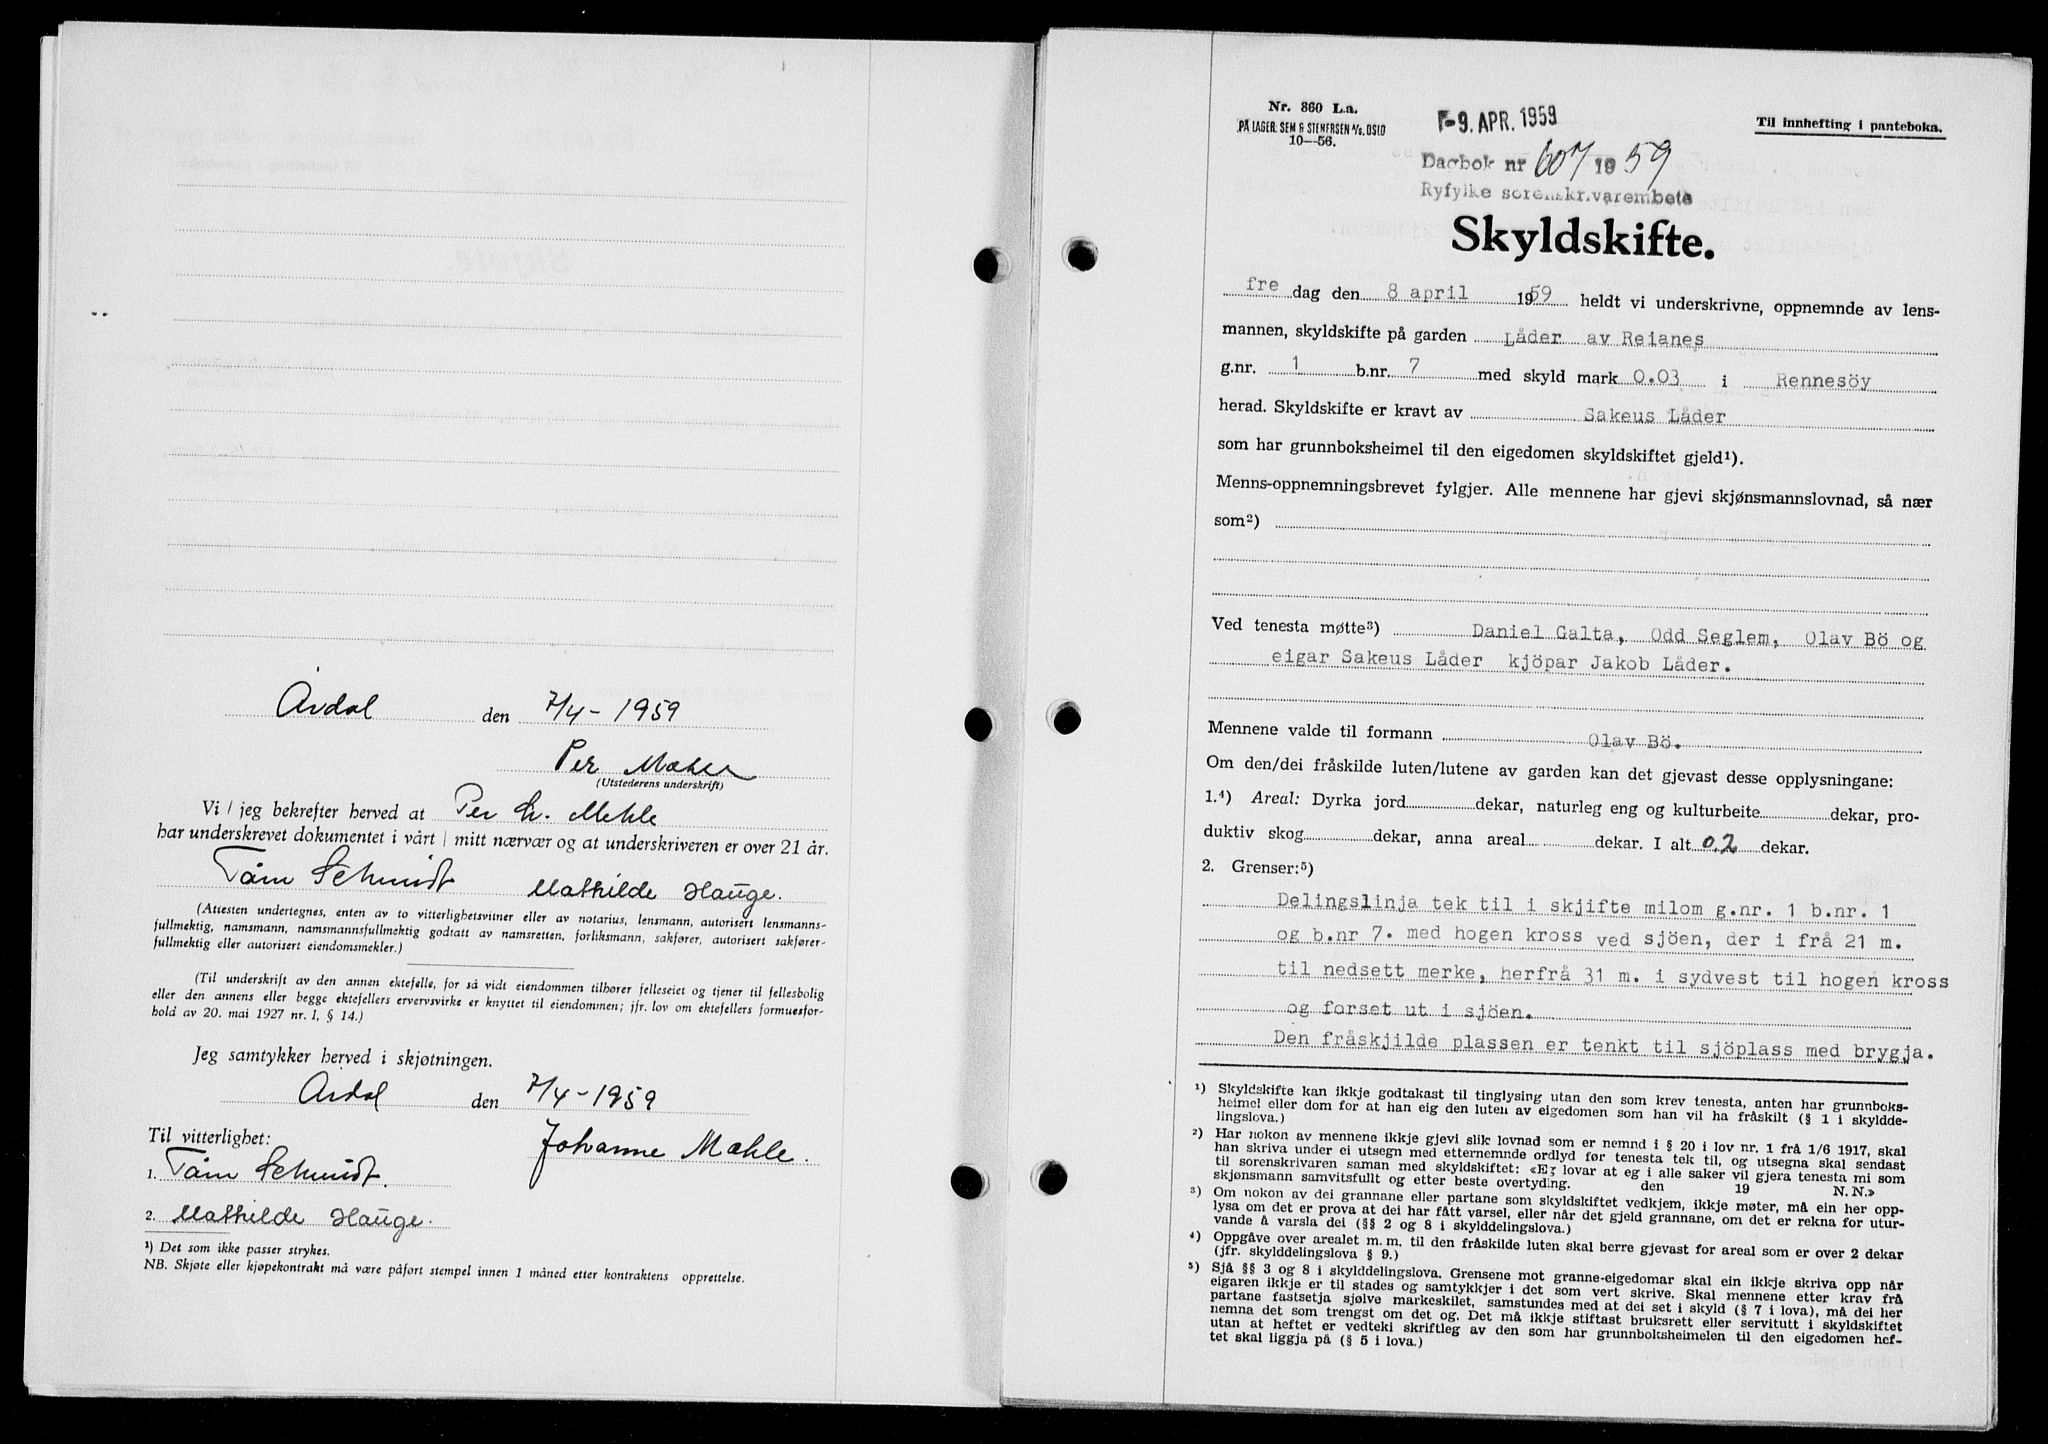 Årdal den 7/4 - 1959
Per Mæhle
(Utstederens underskrift)
Vi / jeg bekrefter herved at Per L. Mehle
har underskrevet dokumentet i vårt / mitt nærvær og at underskriveren er over 21 år.
Tåm Schmidt Mathilde Hauge.
(Attesten undertegnes, enten av to vitterlighetsvitner eller av notarius, lensmann, autorisert lensmanns-
fullmektig, namsmann, namsmannsfullmektig godtatt av namsretten, forliksmann, sakfører, autorisert sakfører-
fullmektig eller autorisert eiendomsmekler.)
(Til underskrift av den annen ektefelle, for så vidt eiendommen tilhører felleseiet og tjener til fellesbolig
eller den annens eller begge ektefellers ervervsvirke er knyttet til eiendommen; jfr. lov om ektefellers formuesfor-
hold av 20. mai 1927 nr. I, § 14.)
Jeg samtykker herved i skjøtningen.
Årdal den 7/4 - 1959
Til vitterlighet:
Johanne Mæhle.
1. Tåm Schmidt.
2. Mathilde Hauge.
¹) Det som ikke passer strykes.
NB. Skjøte eller kjøpekontrakt må være påført stempel innen 1 måned etter kontraktens opprettelse.
Nr. 360 L.a.
PÅ LAGER: SEM & STENERSEN A/S, OSLO
10—56.
9. APR. 1959
Til innhefting i panteboka.
Dagbok nr 607 1959
Ryfylke sorenskrivarembete
Skyldskifte.
fre dag den 8 april 1959 heldt vi underskrivne, oppnemnde av lens-
mannen, skyldskifte på garden Låder av Reianes
g.nr. 1 b.nr. 7 med skyld mark 0.03 i Rennesöy
herad. Skyldskifte er kravt av Sakeus Låder
som har grunnboksheimel til den eigedomen skyldskiftet gjeld¹).
Menns-oppnemningsbrevet fylgjer. Alle mennene har gjevi skjønsmannslovnad, så nær
som²)
Ved tenesta møtte³) Daniel Galta, Odd Seglem, Olav Bö og
eigar Sakeus Låder kjöpar Jakob Låder.
Mennene valde til formann Olav Bö.
Om den/dei fråskilde luten/lutene av garden kan det gjevast desse opplysningane:
1.⁴) Areal: Dyrka jord dekar, naturleg eng og kulturbeite dekar, pro-
duktiv skog dekar, anna areal dekar. I alt 0.2 dekar.
2. Grenser:⁵)
Delingslinja tek til i skjifte milom g.nr. 1 b.nr. 1
og b.nr 7. med hogen kross ved sjöen, der i frå 21 m.
til nedsett merke, herfrå 31 m. i sydvest til hogen kross
og forset ut i sjöen.
Den fråskjilde plassen er tenkt til sjöplass med brygja.
¹) Skyldskifte kan ikkje godtakast til tinglysing utan den som krev tenesta, anten har grunnboks-
heimel eller dom for at han eig den luten av eigedomen som han vil ha fråskilt (§ 1 i skyldde-
lingslova.)
²) Har nokon av mennene ikkje gjevi slik lovnad som er nemnd i § 20 i lov nr. 1 frå 1/6 1917, skal
han skriva under ei utsegn med etternemnde ordlyd før tenesta tek til, og utsegna skal sendast
til sorenskrivaren saman med skyldskiftet: «Eg lovar at eg i alle saker vil gjera tenesta mi som
skjønsmann samvitsfullt og etter beste overtyding. den 19 N. N.»
³) Om nokon av dei grannane eller partane som skyldskiftet vedkjem, ikkje møter, må ein her opp-
lysa om det er prova at dei har fått varsel, eller når det gjeld grannane, om det er rekna for utur-
vande å varsla dei (§§ 2 og 8 i skylddelingslova.)
⁴) Oppgåve over arealet m. m. til den fråskilde luten skal berre gjevast for areal som er over 2 dekar
(jfr. skylddelingslova § 9.)
⁵) Sjå §§ 3 og 8 i skylddelingslova. Grensene mot granne-eigedomar skal ein ikkje skriva opp når
eigaren ikkje er til stades og samtykkjer i det som vert skrive. Skal mennene etter krav frå
partane fastsetja sjølve markeskilet, samstundes med at dei set i skyld (§ 7 i lova), må dei her
nemna det som trengst om det og. Det må ikkje stiftast bruksrett eller servitutt i skyldskiftet
utan at heftet er vedteki skriftleg av den som har grunnboksheimelen til den eigedomen hef-
tet skal liggja på (§ 5 i lova.)